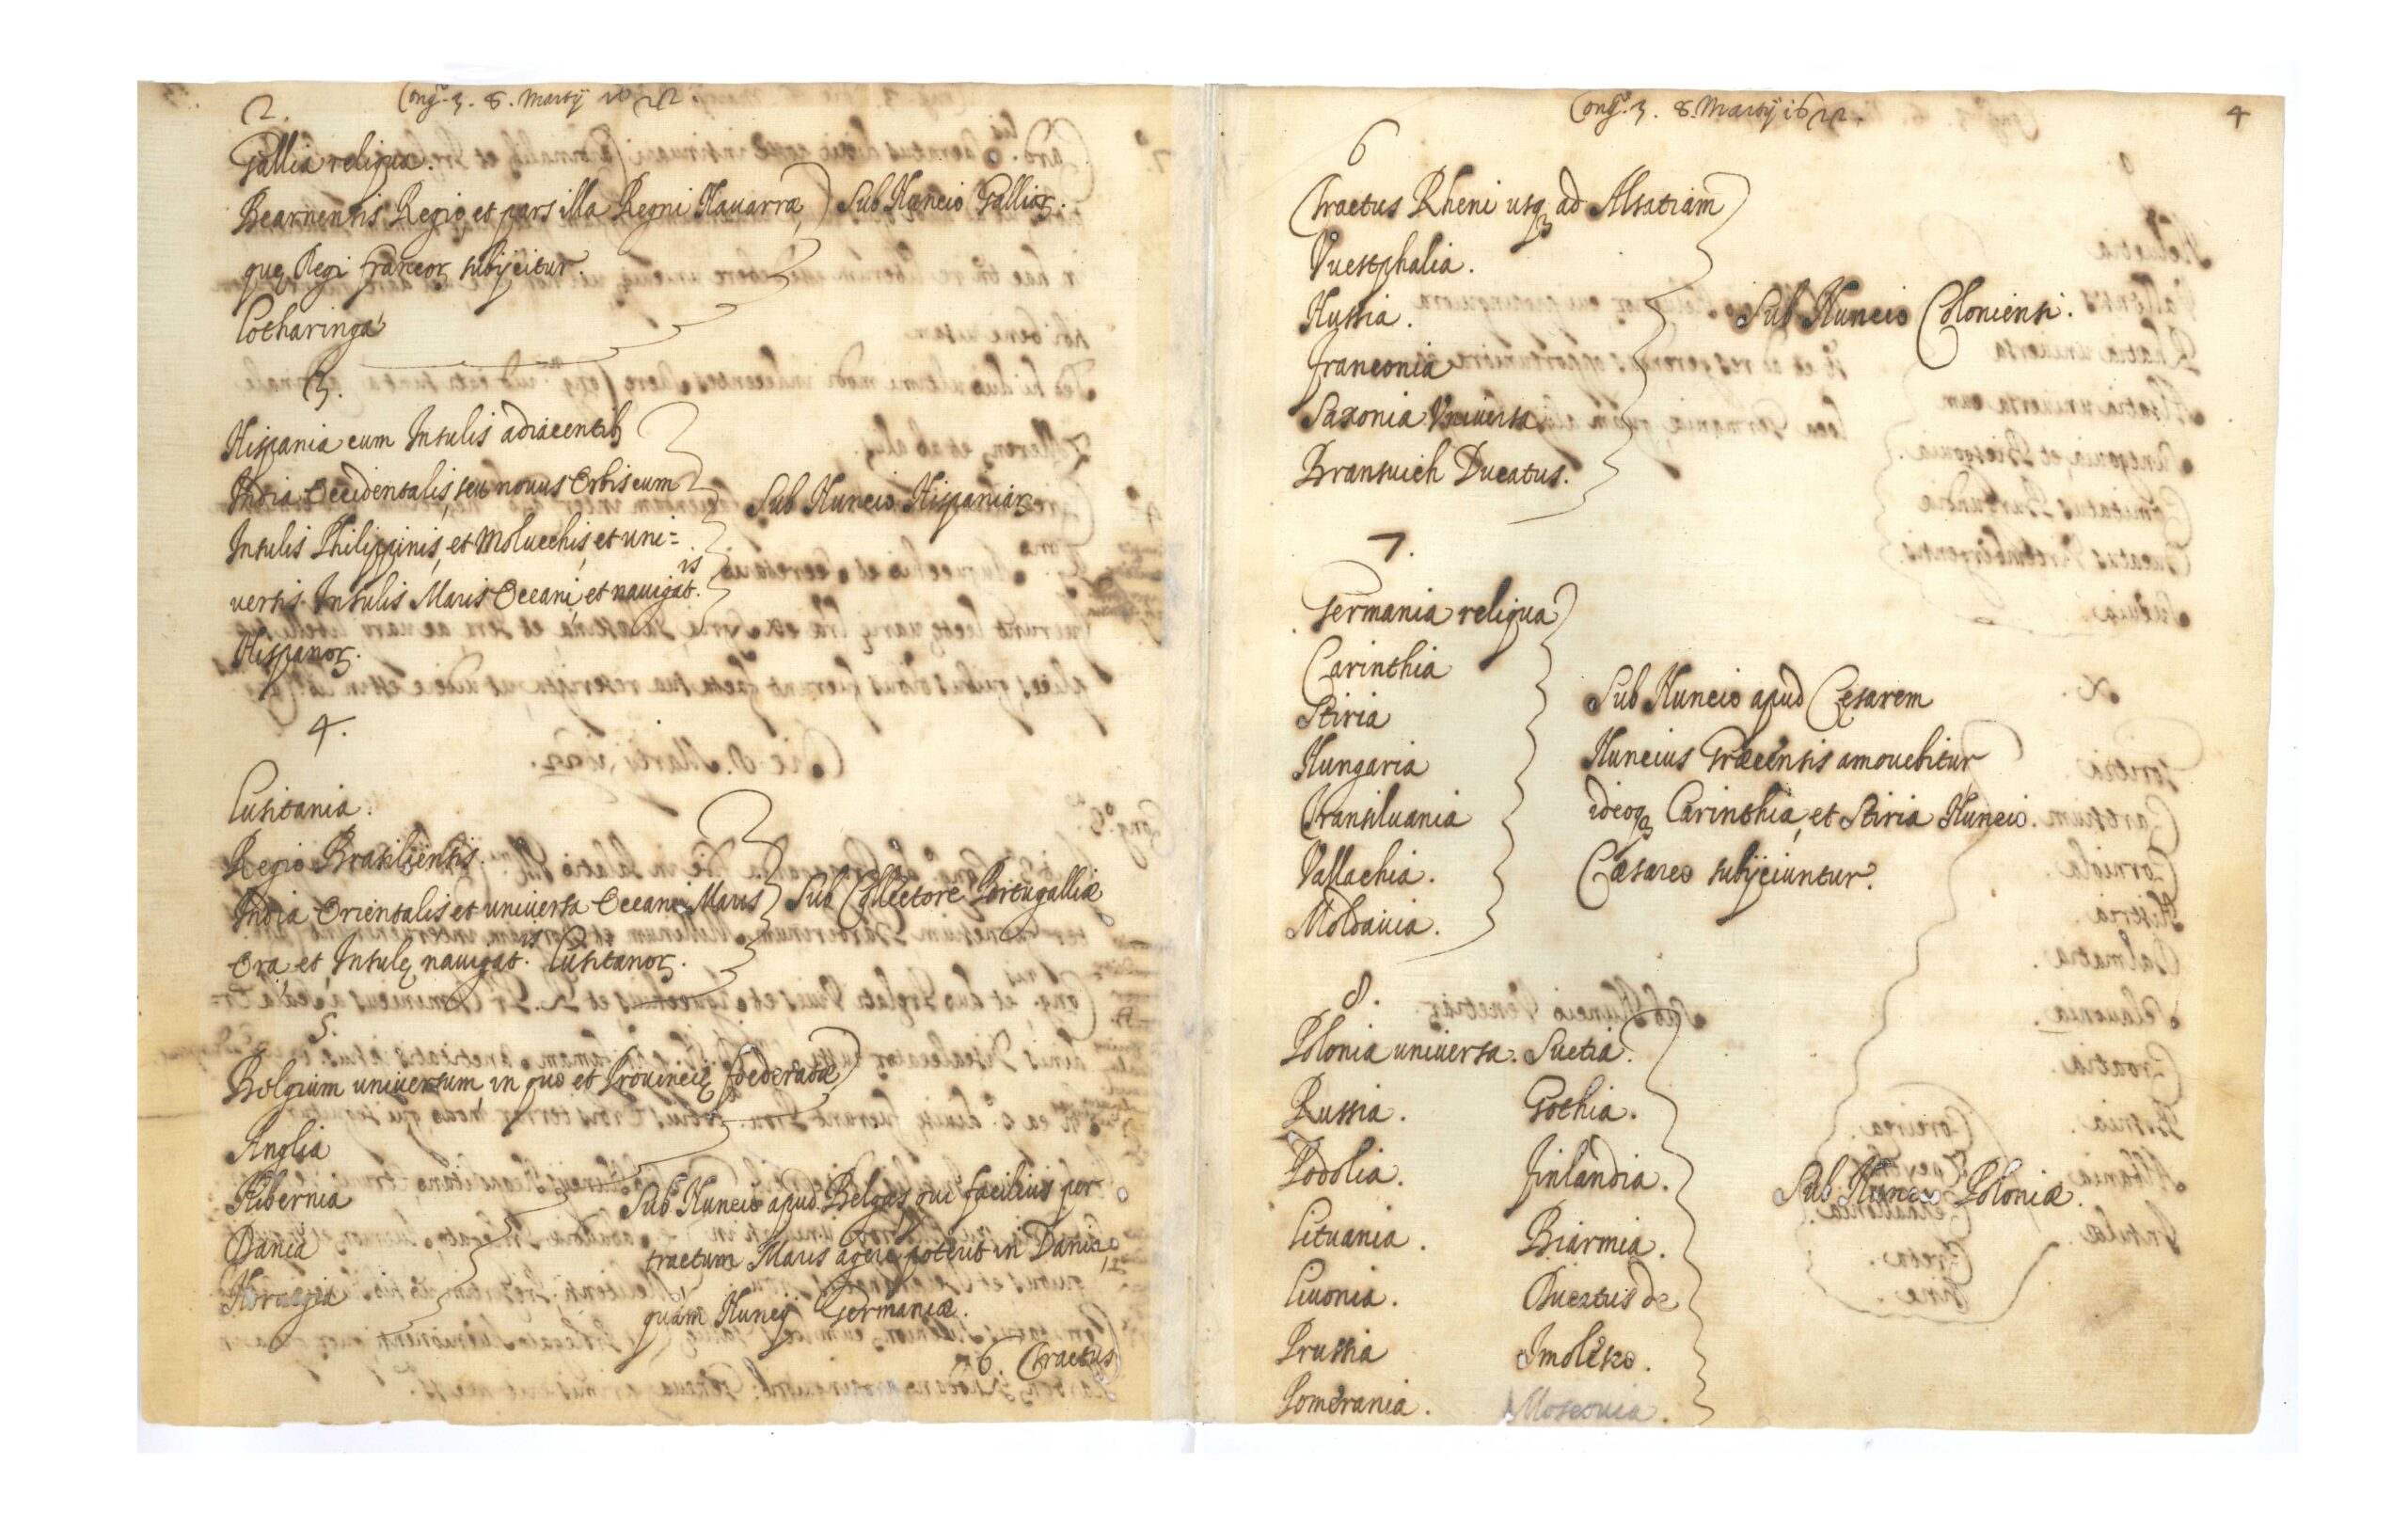 Congᵉ. 3. 8. Martij 1622.
2.
Gallia reliqua.
Bearnensis Regio, et pars illa Regni Nauarræ, Sub Nuncio Galliar.
quę Regi francor subijcitur.
Lotharinga
3.
Hispania cum Insulis adiacentib
India Occidentalis, seu nouus Orbis cum
Sub Nuncio Hispaniar
Insulis Philippinis, et Molucchis, et uni=
versis Insulis Maris Oceani, et nauigat.is
Hispanor.
4.
Lusitania.
Regio Brasiliensis.
India Orientalis et universa Oceani Maris Sub Collectore Portugalliæ
Ora et Insulę nauigat.is Lusitanor.
5.
Belgium universum, in quo et Prouincię foederatæ
Anglia
Hibernia
Sub Nuncio apud Belgas, qui facilius per
Dania
tractum Maris agere poterit in Dania,
Noruegia
quàm Nuncij Germaniæ.
6. Tractus
Congᵉ. 3. 8. Martij 1622.
4
6
Tractus Rheni usq ad Alsatiam
Vuestphalia.
Hassia.
Sub Nuncio Coloniensi.
franconia
Saxonia Vniuersa
Bransuich Ducatus.
7.
Germania reliqua
Carinthia
Stiria
Sub Nuncio apud Cęsarem
Hungaria
Nuncius Græcensis amouebitur
Transiluania
ideoq Carinthia, et Stiria Nuncio.
Vallachia.
Cæsareo subijciuntur.
Moldauia.
8.
Polonia universa. Suetia.
Russia. Gothia.
Podolia. finlandia.
Sub Nuncio Poloniæ.
Lituania. Biarmia.
Liuonia. Ducatus de
Prussia Smolesko.
Pomerania. Moscouia.